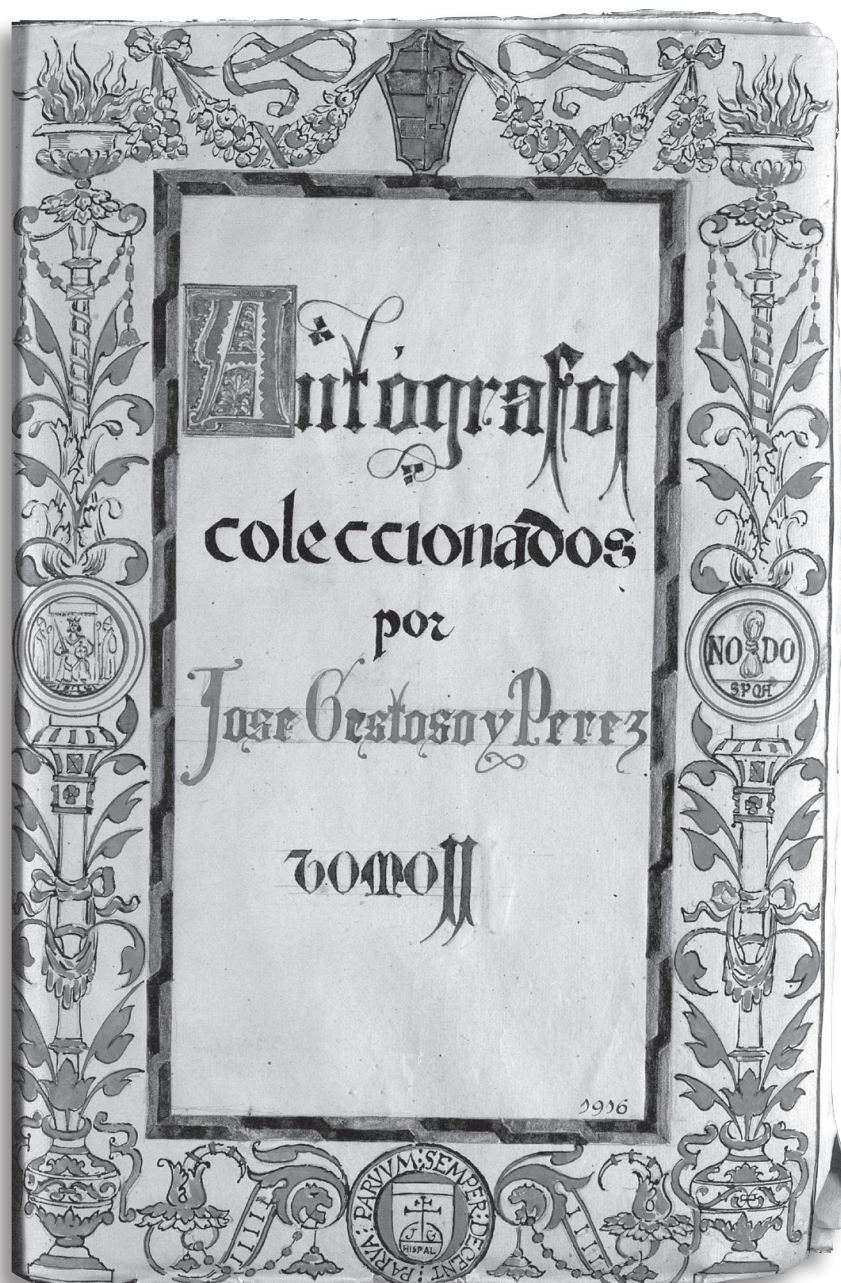 Autógrafos
coleccionados
por
Jose Gestoso y Perez
tomo II
1916
NO DO
SPQH
PARVVM: SEMPER: DECENT: PARVA:
J G
HISPAL